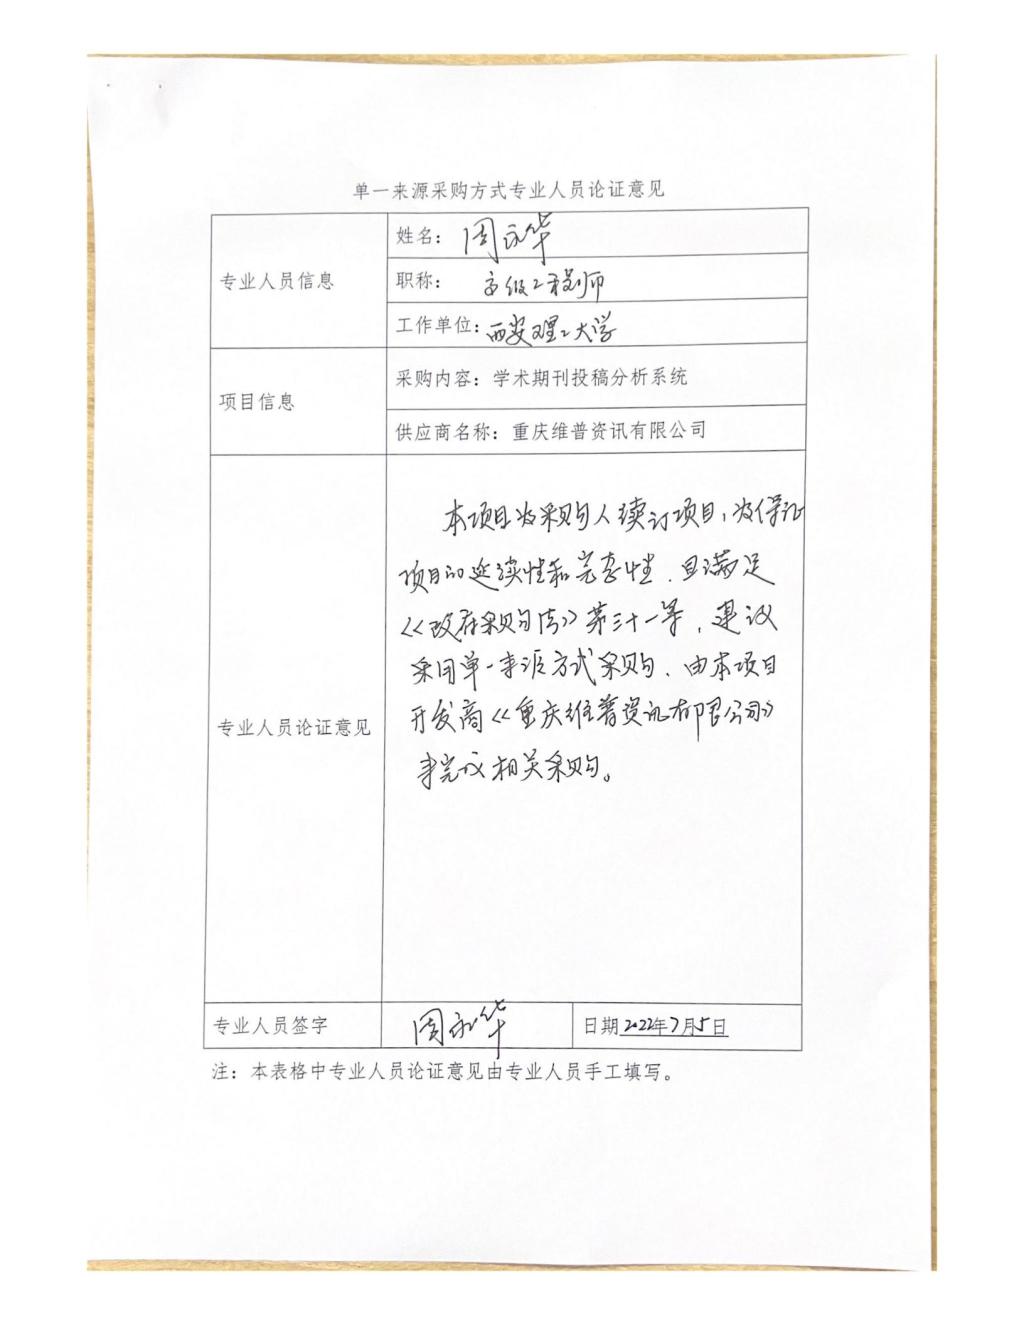 单一来源采购方式专业人员论证意见
专业人员信息
姓名：周永华
职称：高级工程师
工作单位：西安理工大学
项目信息
采购内容：学术期刊投稿分析系统
供应商名称：重庆维普资讯有限公司
专业人员论证意见
本项目为采购人续订项目，为保证
项目的延续性和完整性，且满足
《政府采购法》第三十一条，建议
采用单一来源方式采购，由本项目
开发商《重庆维普资讯有限公司》
来完成相关采购。
专业人员签字
周永华
日期2022年7月5日
注：本表格中专业人员论证意见由专业人员手工填写。